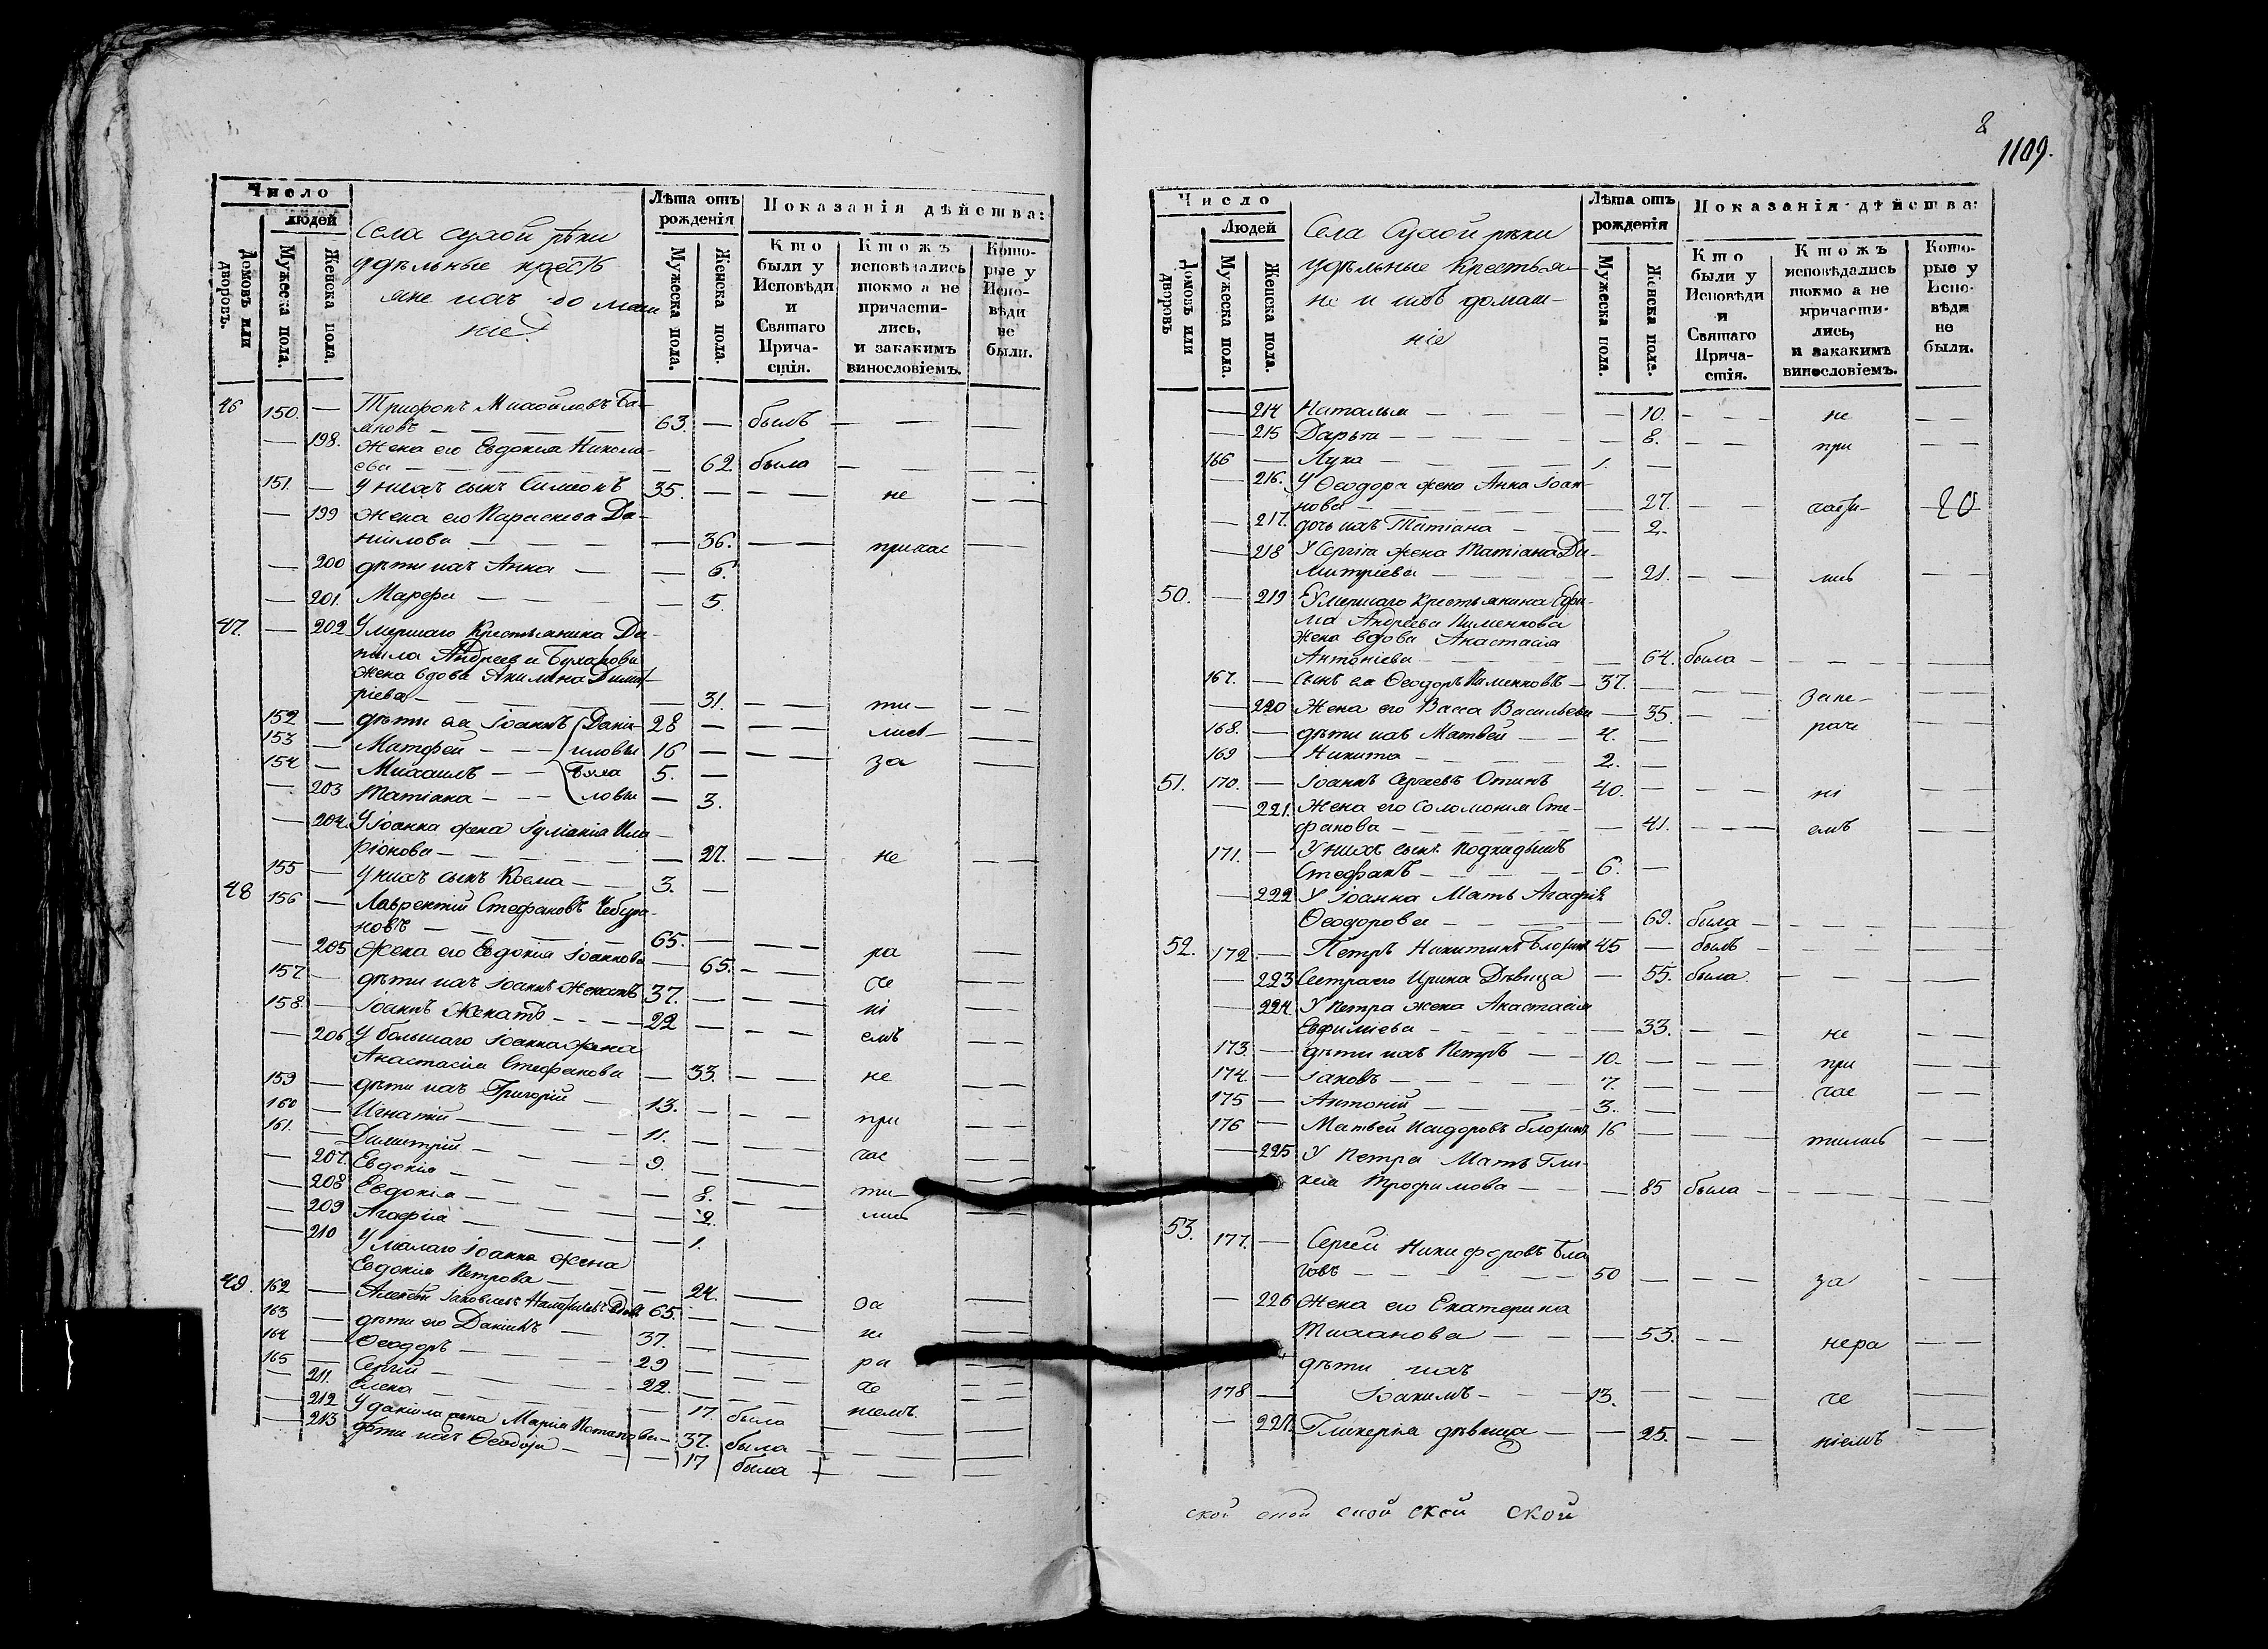 Число
людей
Домовъ или дворовъ.
Мужеска пола.
Женска пола.
Села сухой рѣки
удѣльные кресть
яне ихъ домаш
ніе
Лѣта отъ рожденія
Мужеска пола.
Женска пола.
Показанія дѣйства:
Кто были у Исповѣди и Святаго Причастія.
Ктожъ исповѣдались токмо а не причастились, и закакимъ винословіемъ.
Которые у Исповѣди не были.
46 150. — Трифонъ Михайловъ Ба-
— — 63. — былъ — — —
— 198. Жена его Евдокия Никола-
ева — — 62. была — — —
151. — У нихъ сынъ Симеонъ 35. — — — не — —
— 199 жена его Параскева Да-
ниилова — — 36. — — причас — —
— 200 дѣти ихъ Анна — — 6.
— 201. Марфа — — 5.
47. — 202 Умершаго Крестьянина Да-
ниила Андреева
жена вдова Акилина Димит-
ріева — — 31. — — ти — — —
152 — дѣти ея Іоаннъ Дани- 28 — — лись — —
153 — Матфей — — иловы 16 — — за — —
154 — Михаилъ — — 5. —
— 203 Татіана — — ловы — 3.
— 204. У Іоанна жена Іуліанія Ила-
ріонова — — 27. — — не — —
155 — У нихъ сынъ Косма — 3. —
48 156 — Лаврентий Стефановъ Чебура-
новъ — 65. — — —
— 205 Жена его Евдокия Іоаннова — 65. — — ра — —
157. — дѣти ихъ Іоаннъ женатъ 37. — — — че — —
158. — Іоаннъ Женатъ — 22 — — — ні — —
— 206 У большаго Іоанна жена емъ
Анастасія Стефанова — 33. — — не — —
159 — дѣти ихъ Григорий — 13. — — —
160 — Игнатий — 11. — — при — —
161. — Димитрий — 9. — — час — —
— 207. Евдокия — — 8. — — ти — —
— 208 Евдокія — — 2. лись — —
— 209 Агафия — — 1.
— 210 У малаго Іоанна жена
Евдокия Петрова — — 24. — — за — —
49. 162 — Алексей Іаковлевъ 65. — — —
163 — дѣти его Даніилъ — 37. — — не — —
164 — Ѳеодоръ — 29 — — ра — —
165 — Сергій — 22. — — че — —
— 211. Елена — — 17. была ніемъ — —
— 212 У даніила жена Мария Потапова — 37. была — — —
— 213 дѣти ихъ Ѳеодосія — — 17 была — — —
2
1109.
Число
Людей
Домовъ или дворовъ
Мужеска пола.
Женска пола.
Села Сухой рѣки
удѣльные Крестья-
не и ихъ домаш-
ніе
Лѣта отъ рожденія
Мужеска пола.
Женска пола.
Показанія дѣйства:
Кто были у Исповѣди и Святаго Причастія.
Ктожъ исповѣдались токмо а не причастились, и закакимъ винословіемъ.
Которые у Исповѣди не были.
— 214 Наталья — — 10. — — не — —
— 215 Дарья — — 8. — — при — —
166 — Лука — 1. —
— 216. У Ѳеодора жена Анна Іоан-
нова — — 27. — — части- 20
— 217. дочь ихъ Татіана — — 2.
— 218 У Сергія жена Татіана Ди-
митріева — — 21. — — лись — —
50. — 219 Умершаго Крестьянина Ефи-
ма Андреева Пименкова
жена вдова Анастасія
Антоніева — — 64. была — — — —
167. — Сынъ ея Ѳеодоръ Пименковъ — 37. — — — зане- —
— 220 Жена его Васса Васильева — 35. — — раче —
168. — дѣти ихъ Матвей — 4. —
169 — Никита — 2. —
51. 170. — Іоаннъ Сергеевъ Отинъ 40. — — — ні — —
— 221. Жена его Соломония Сте-
фанова — — 41. — — емъ — —
171. — У нихъ сынъ подкидышъ
Стефанъ — 6. —
— 222 У Іоанна Мать Агафія
Ѳеодорова — — 69. была — — —
52. 172. — Петръ Никитинъ 45 — былъ — — —
— 223 Сестра его Ирина Дѣвица — 55. была — —
— 224. У Петра жена Анастасія
Евфиміева — — 33. — — не — —
173. — дѣти ихъ Петръ — 10. — — — при — —
174. — Іаковъ — 7. — — — час — —
175 — Антоній — 3. —
176 — Матвей Исидоровъ 16 — — — тились — —
— 225 У Петра Мать Гли-
кия Трофимова — — 85 была — — —
53. 177. — Сергей Никифоровъ Бла
говъ — 50 — — — за — —
— 226 Жена его Екатерина
— — 53. — — нера — —
дѣти ихъ
178 — Іоакимъ — 13. — — — че — —
— 227. Гликерія дѣвица — — 25. — — ніемъ — —
ской ской ской ской ской